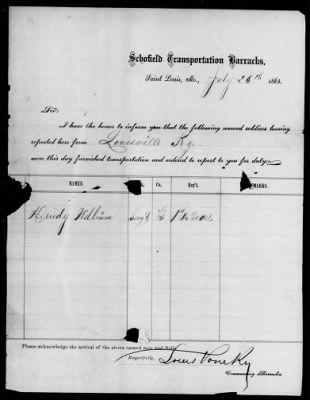 Schofield Transportation Barracks,
Saint Louis, Mo., July 26th 186
Sir:
I have the honor to inform you that the following named soldiers having
reported here from Louisville Ky.
were this day furnished transportation and ordered to report to you for duty:
NAMES. Co. Reg't. REMARKS.
William
Please acknowledge the arrival of the above named men and
Respectfully, Louis
Commanding Barracks.